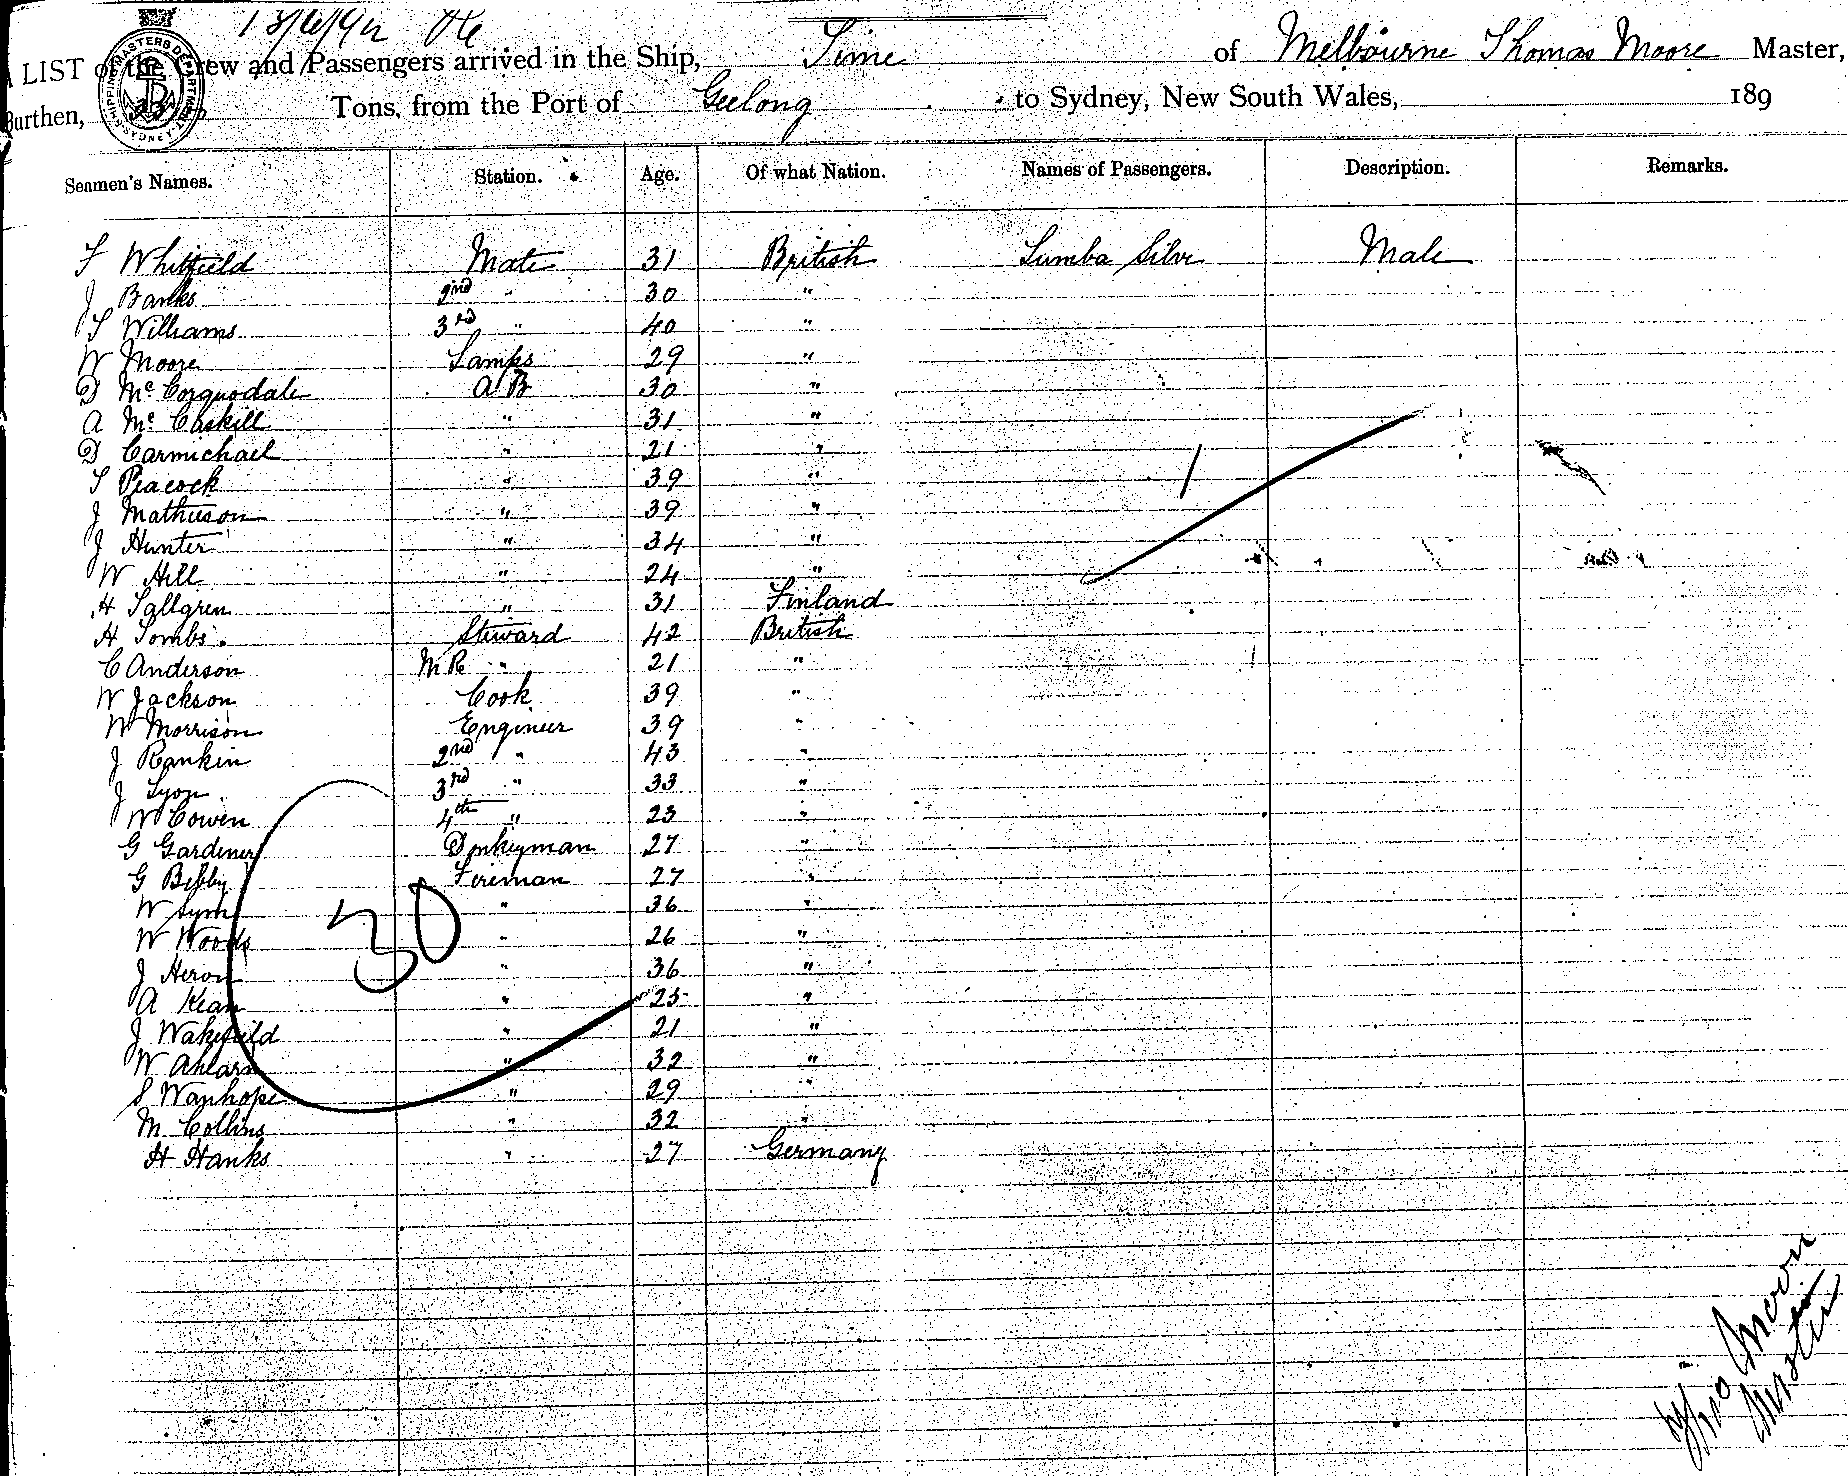 13/6/92
A LIST of the Crew and Passengers arrived in the Ship, Time of Melbourne Thomas Moore Master,
Burthen, Tons, from the Port of Geelong to Sydney, New South Wales, 189
Seamen's Names. Station. Age. Of what Nation. Names of Passengers. Description. Remarks.
T Whitfield Mate 31 British Sumba Silve Male
J Banks 2nd " 30 "
T Williams 3rd " 40 "
W Moore Lamps 29 "
D McCorquodale A B 30 "
A McCaskill " 31 "
D Carmichael " 21 "
T Peacock " 39 "
J Mathieson " 39 "
J Hunter " 34 "
W Hill " 24 "
H Sallgren " 31 Finland
H Tombs Steward 42 British
C Anderson M R " 21 "
W Jackson Cook 39 "
W Morrison Engineer 39 "
J Rankin 2nd " 43 "
J Lyon 3rd " 33 "
W Cowen 4th " 23 "
G Gardiner Donkeyman 27 "
G Bibby Fireman 27 "
W Sym " 36 "
W Woods " 26 "
J Heron " 36 "
A Kean " 25 "
J Wakefield " 21 "
W Ahearn " 32 "
S Wanhope " 29 "
M Collins " 32 "
H Hanks " 27 Germany
30
1
Thos Moore
Master